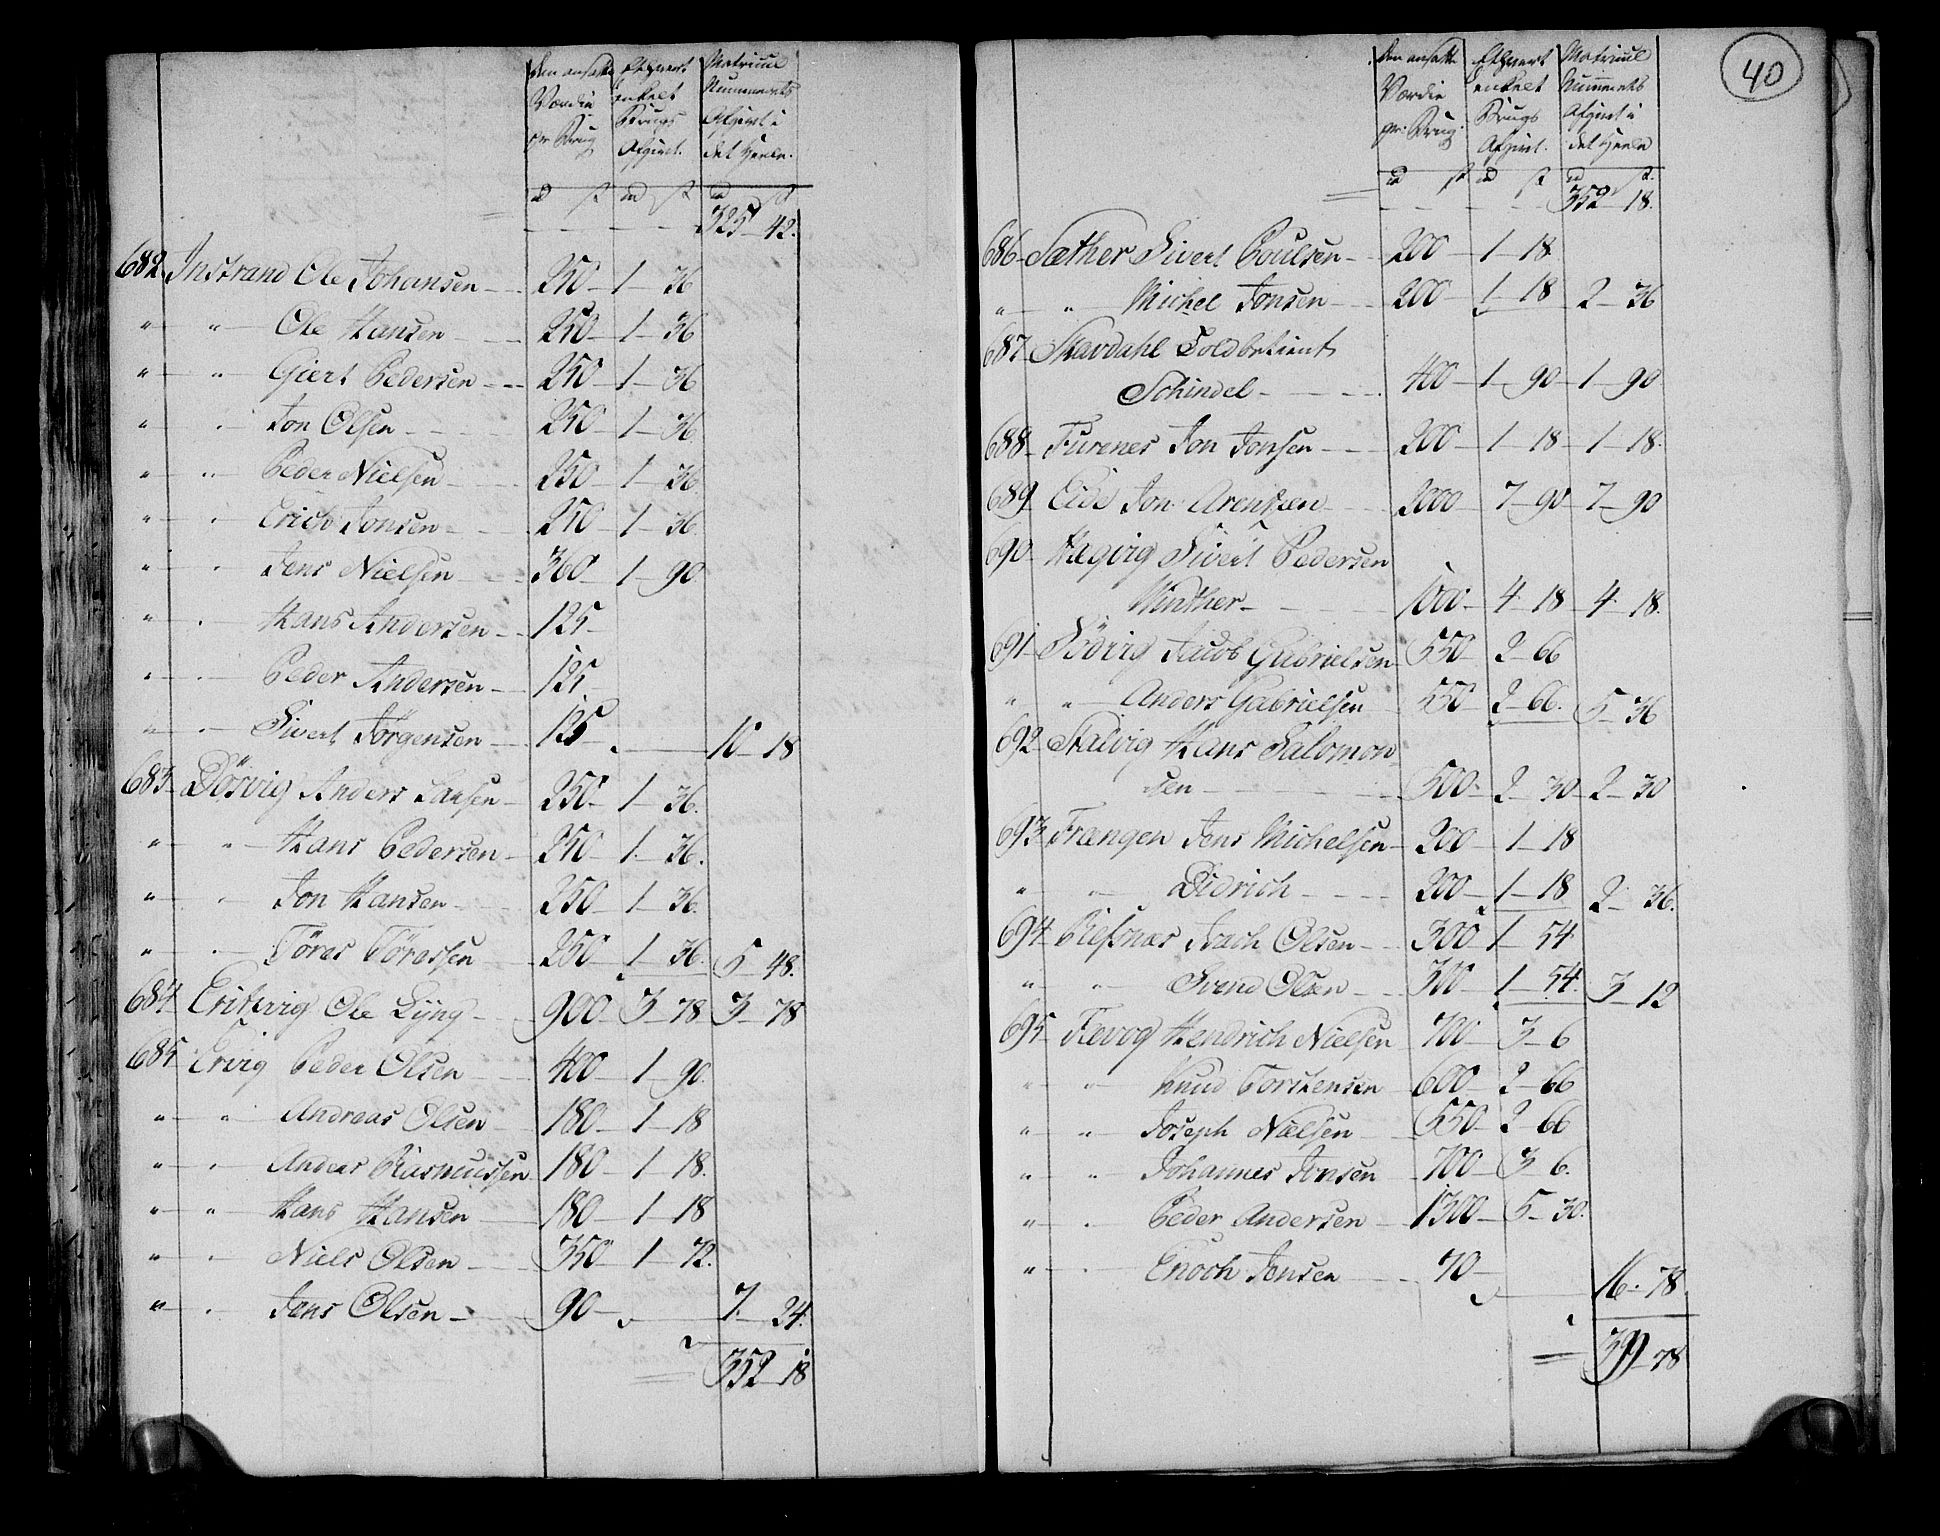 Den ansatte Værdie pr Brug
Ethvert enkelt Brugs Afgivt.
Matricul Nummerets Afgivt i det Heele.
325 - 42.
682. Instrand Ole Johansen - 250 - 1 - 36
" " Ole Hansen - 250 - 1 - 36
" " Giert Pedersen - 250 - 1 - 36
" " Jon Olsen - 250 - 1 - 36
" " Peder Nielsen - 250 - 1 - 36
" " Erich Jonsen - 250 - 1 - 36
" " Jens Nielsen - 360 - 1 - 90
" " Hans Andersen - 125 -
" " Peder Andersen - 125 -
" " Sivert Jörgensen - 125 - 10 - 18
683 Dösvig Anders Larsen - 250 - 1 - 36.
" " Hans Pedersen - 250 - 1 - 36.
" " Jon Hansen - 250 - 1 - 36.
" " Töres Töressen - 250 - 1 - 36. 5 - 48.
684 Ole Lÿng - 900 - 3 - 78 3 - 78
685 Ervig Peder Olsen - 400 - 1 - 90.
" " Andreas Olsen - 180 - 1 - 18
" " Anders Rasmussen - 180 - 1 - 18.
" " Hans Hansen - 180 - 1 - 18
" " Niels Olsen - 350 - 1 - 72.
" " Jens Olsen - 90 - 7. 24.
352 - 18
40
Den ansatte Værdie pr: Brug.
Ethvert enkelt Brugs Afgivt.
Matricul Nummerets Afgivt i det Heele
352 - 18.
686 - Sæther Sivert Poulsen - 200 - 1 - 18.
" " Michel Jonsen - 200 - 1 - 18 2 - 36
687 Stavdahl Toldbetient
Schindel - 400 - 1 - 90 - 1 - 90
688 - Furenes Jon Jonsen - 200 - 1 - 18 - 1 - 18.
689 Eide Jon Arentzen - 2000 - 7 - 90 7 - 90
690 - Hægvig Sivert Pedersen
Winther - 1000 - 4 - 18 4 - 18.
691 Södvig Jacob Gabrielsen 550 - 2 - 66
" " Anders Gabrielsen 550 - 2 - 66. 5 - 36
692 Stalvig Hans Salomon
sen - 500 - 2 - 30 - 2 - 30
693 Frængen Jens Michelsen - 200 - 1 - 18
" " Didrich - 200 - 1 - 18 2 - 36.
694 Olsen - 300 1 - 54
" " Svend Olsen - 300 - 1 - 54. 3 - 12
695 Fævog Hendrich Nielsen 700 - 3 - 6
" " Knud Torstensen - 600 - 2 - 66
" " Joseph Nielsen - 550 - 2 - 66
" " Johannes Jonsen - 700 - 3 - 6.
" " Peder Andersen - 1300 - 5 - 30.
" " Enoch Jonsen - 70 - 16 - 78.
399 - 78